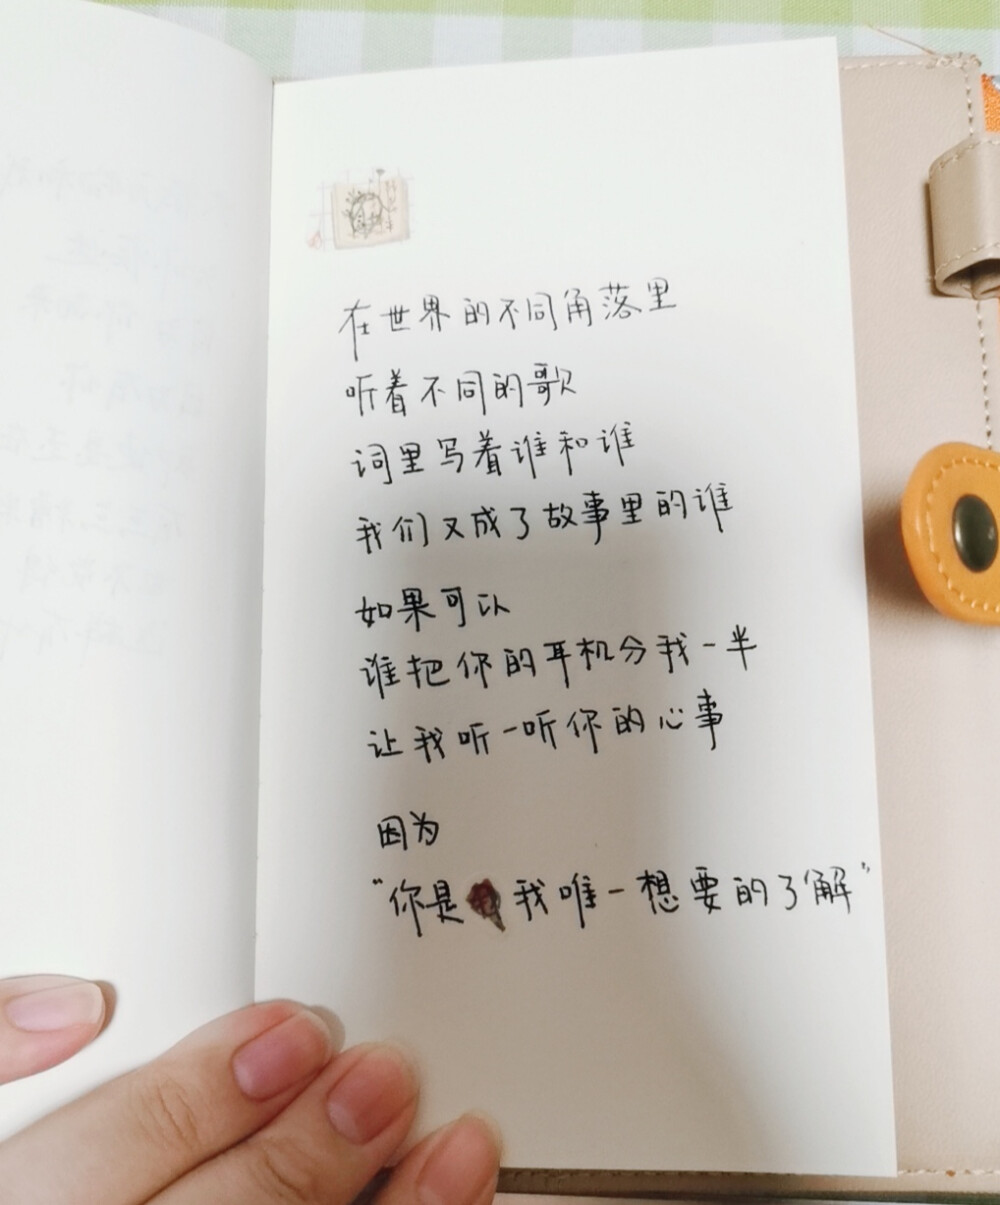 在世界的不同角落里
听着不同的歌
词里写着谁和谁
我们又成了故事里的谁
如果可以
谁把你的耳机分我一半
让我听一听你的心事
因为
“你是我唯一想要的了解”